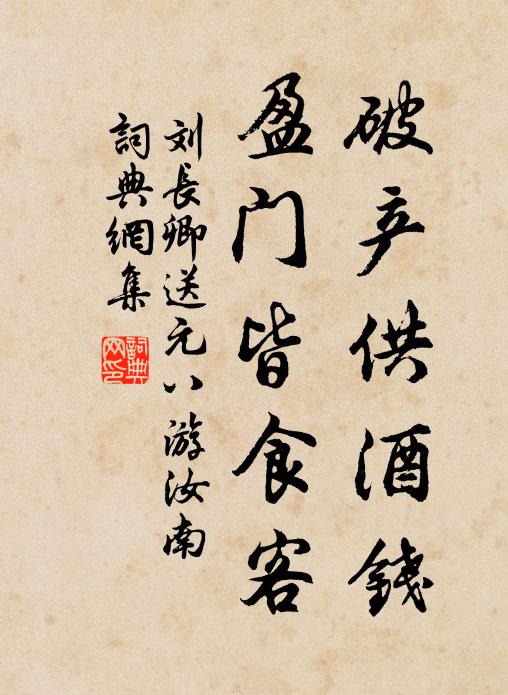 破产供酒錢
盈门皆食客
刘長卿送元八游汝南
詞典網集
詞典网印